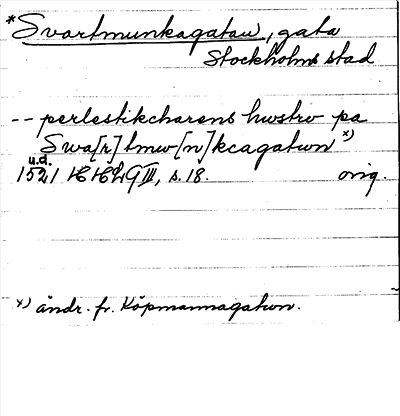 *Svartmunkagatan, gata
Stockholms stad
-- perlestikcharens hwstrv pa
Swa[r]tmw[n]kcagatwn x)
u.d.
1521 HH, s. 18. orig.
x) ändr. fr. Köpmannagatwn.